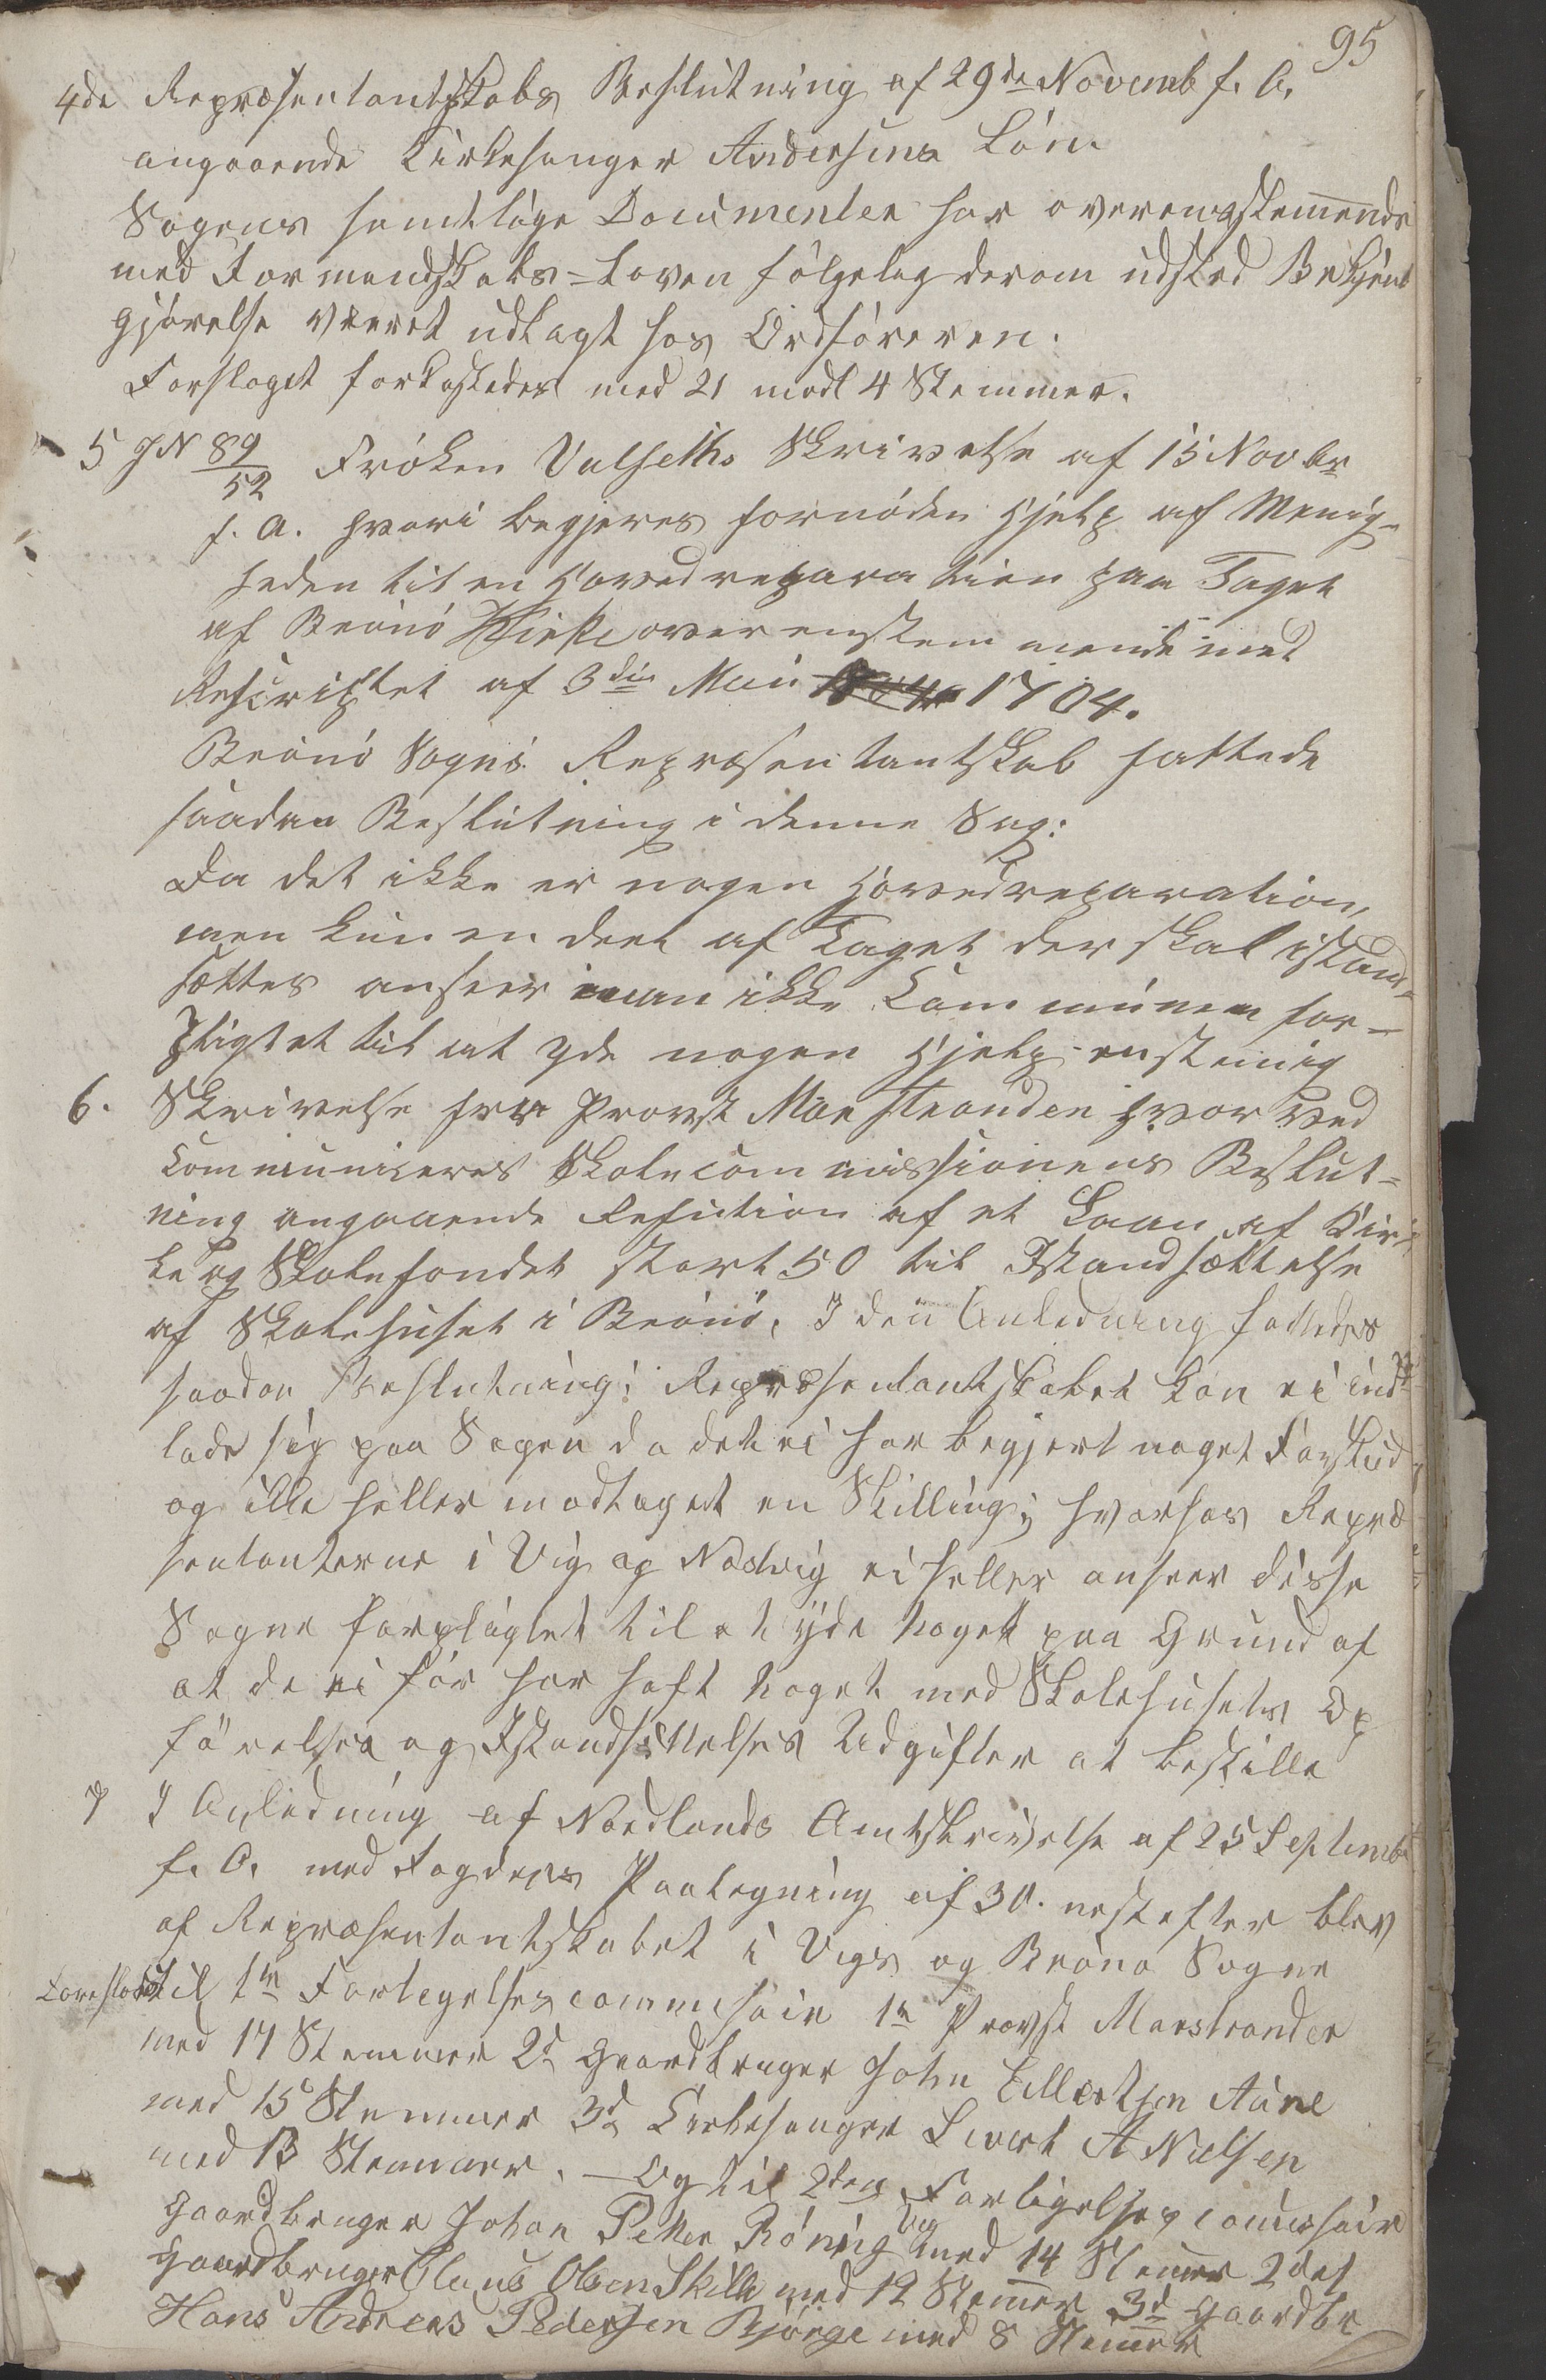 95
4de Repræsentantskabs Beslutning af 29de Novemb f. A.
angaaende Kirkesanger Andersens Løn
Sagens samtlige Documenter har overensstemmende
med Formandskabs-Loven følgelig derom udsted Bekjent
gjørelse været udlagt hos Ordføreren.
Forslaget forkastedes med 21 mod 4 Stemmer.
5 JN 89/52 Frøken Valseths Skrivelse af 15 Novbr
f. A. hvori begjeres fornøden Hjelp af Menig-
heden til en Hovedreparation paa Taget
af Brønø Kirke overenstemmende med
Rescriptet af 3die Mai 1704.
Brønø Sogns Repræsentantskab fattede
saadan Beslutning i denne Sag:
Da det ikke er nogen Hovedreparation,
men kun en deel af Taget der skal istand-
sættes anseer man ikke Communen for-
pligtet til at yde nogen Hjelp - enstemig
6. Skrivelse fra Provst Marstrander hvorved
communiceres Skolecommissionens Beslut-
ning angaaende Refution af et Laan af Kir-
ke og Skolefondet stort 50 til Istandsættelse
af Skolehuset i Brønø. I den Anledning fattedes
saadan Beslutning: Repræsentantskabet kan ei ind
lade sig paa Sagen da det ei har begjert noget Forskud
og ikke heller modtaget en Skilling; hvorhos Repræ
sentanterne i Vig og Nødvig ei heller anseer disse
Sogne forpligtet til at yde noget paa Grund af
at de ei før har haft noget med Skolehusets Op
førelses og Istandsættelses Udgifter at bestille
7 I Anledning af Nordlands Amtskrivelse af 25 Septembr
f. A. med Fogdens Paategning af 30. nestefter blev
af Repræsentantskabet i Vigs og Brønø Sogne
Foreslaaet til 1ste Forligelsescommisair 1ste Provst Marstrander
med 17 Stemmer 2d Gaardbruger John Ellertsen Aune
med 15 Stemmer 3d Kirkesanger Sivert A Nielsen
med 13 Stemmer. - Og til 2den Forligelsescommissair
Gaardbruger Johan Petter Rønnig Vig med 14 Stemmer 2det
Gaardbruger Claus Olsen Skille med 12 Stemmer 3d Gaardbr
Hans Andreas Pedersen Bjørge med 8 Stemmer